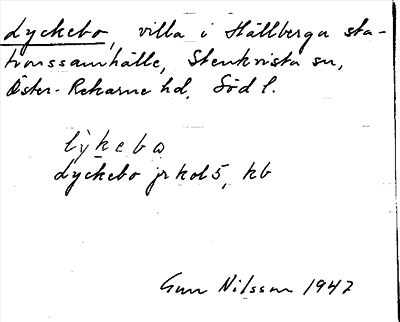 Lyckebo, villa i Hällberga sta-
tionssamhälle, Stenkvista sn,
Öster-Rekarne hd, Södl.
lỳkebo
Lyckebo jr kol 5, kb
Gun Nilsson 1947